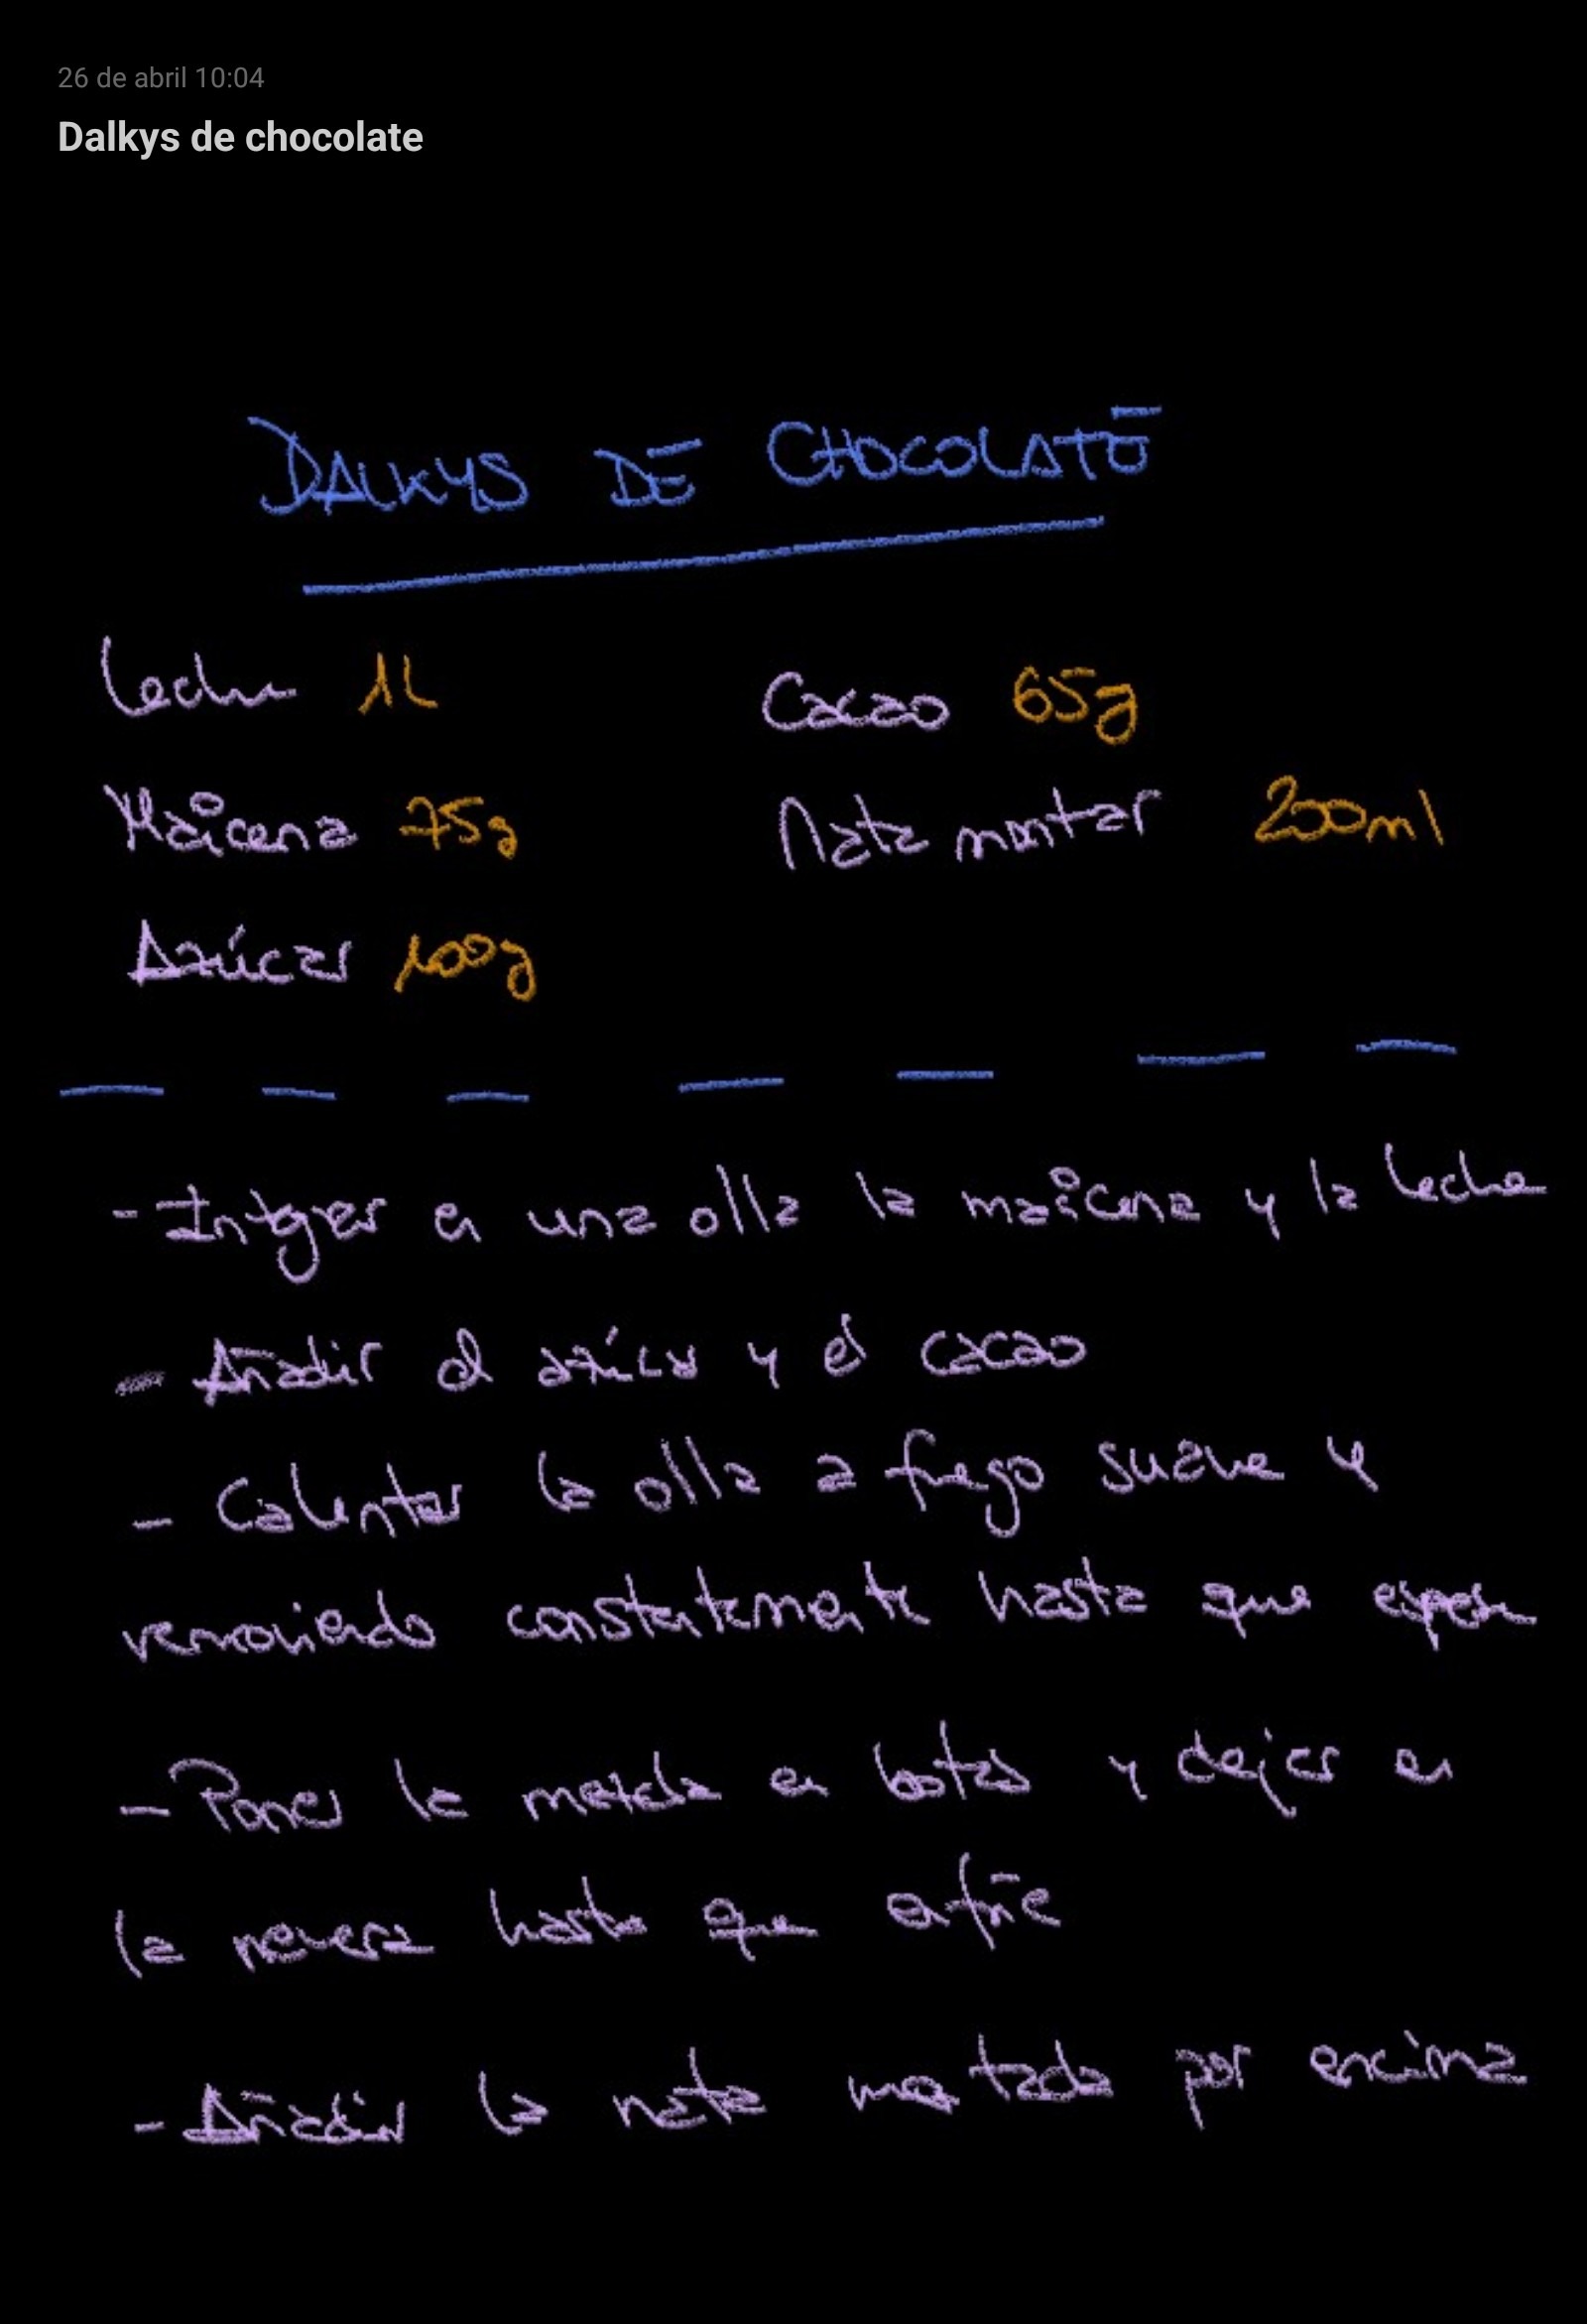 26 de abril 10:04
Dalkys de chocolate
DALKYS DE CHOCOLATE
Leche 1L
Cacao 65g
Maicena 75g
Nata montar 200ml
Azúcar 100g
- Integrar en una olla la maicena y la leche
- Añadir el azúcar y el cacao
- Calentar la olla a fuego suave y
removiendo constantemente hasta que espese
- Poner la mezcla en botes y dejar en
la nevera hasta que enfríe
- Añadir la nata montada por encima